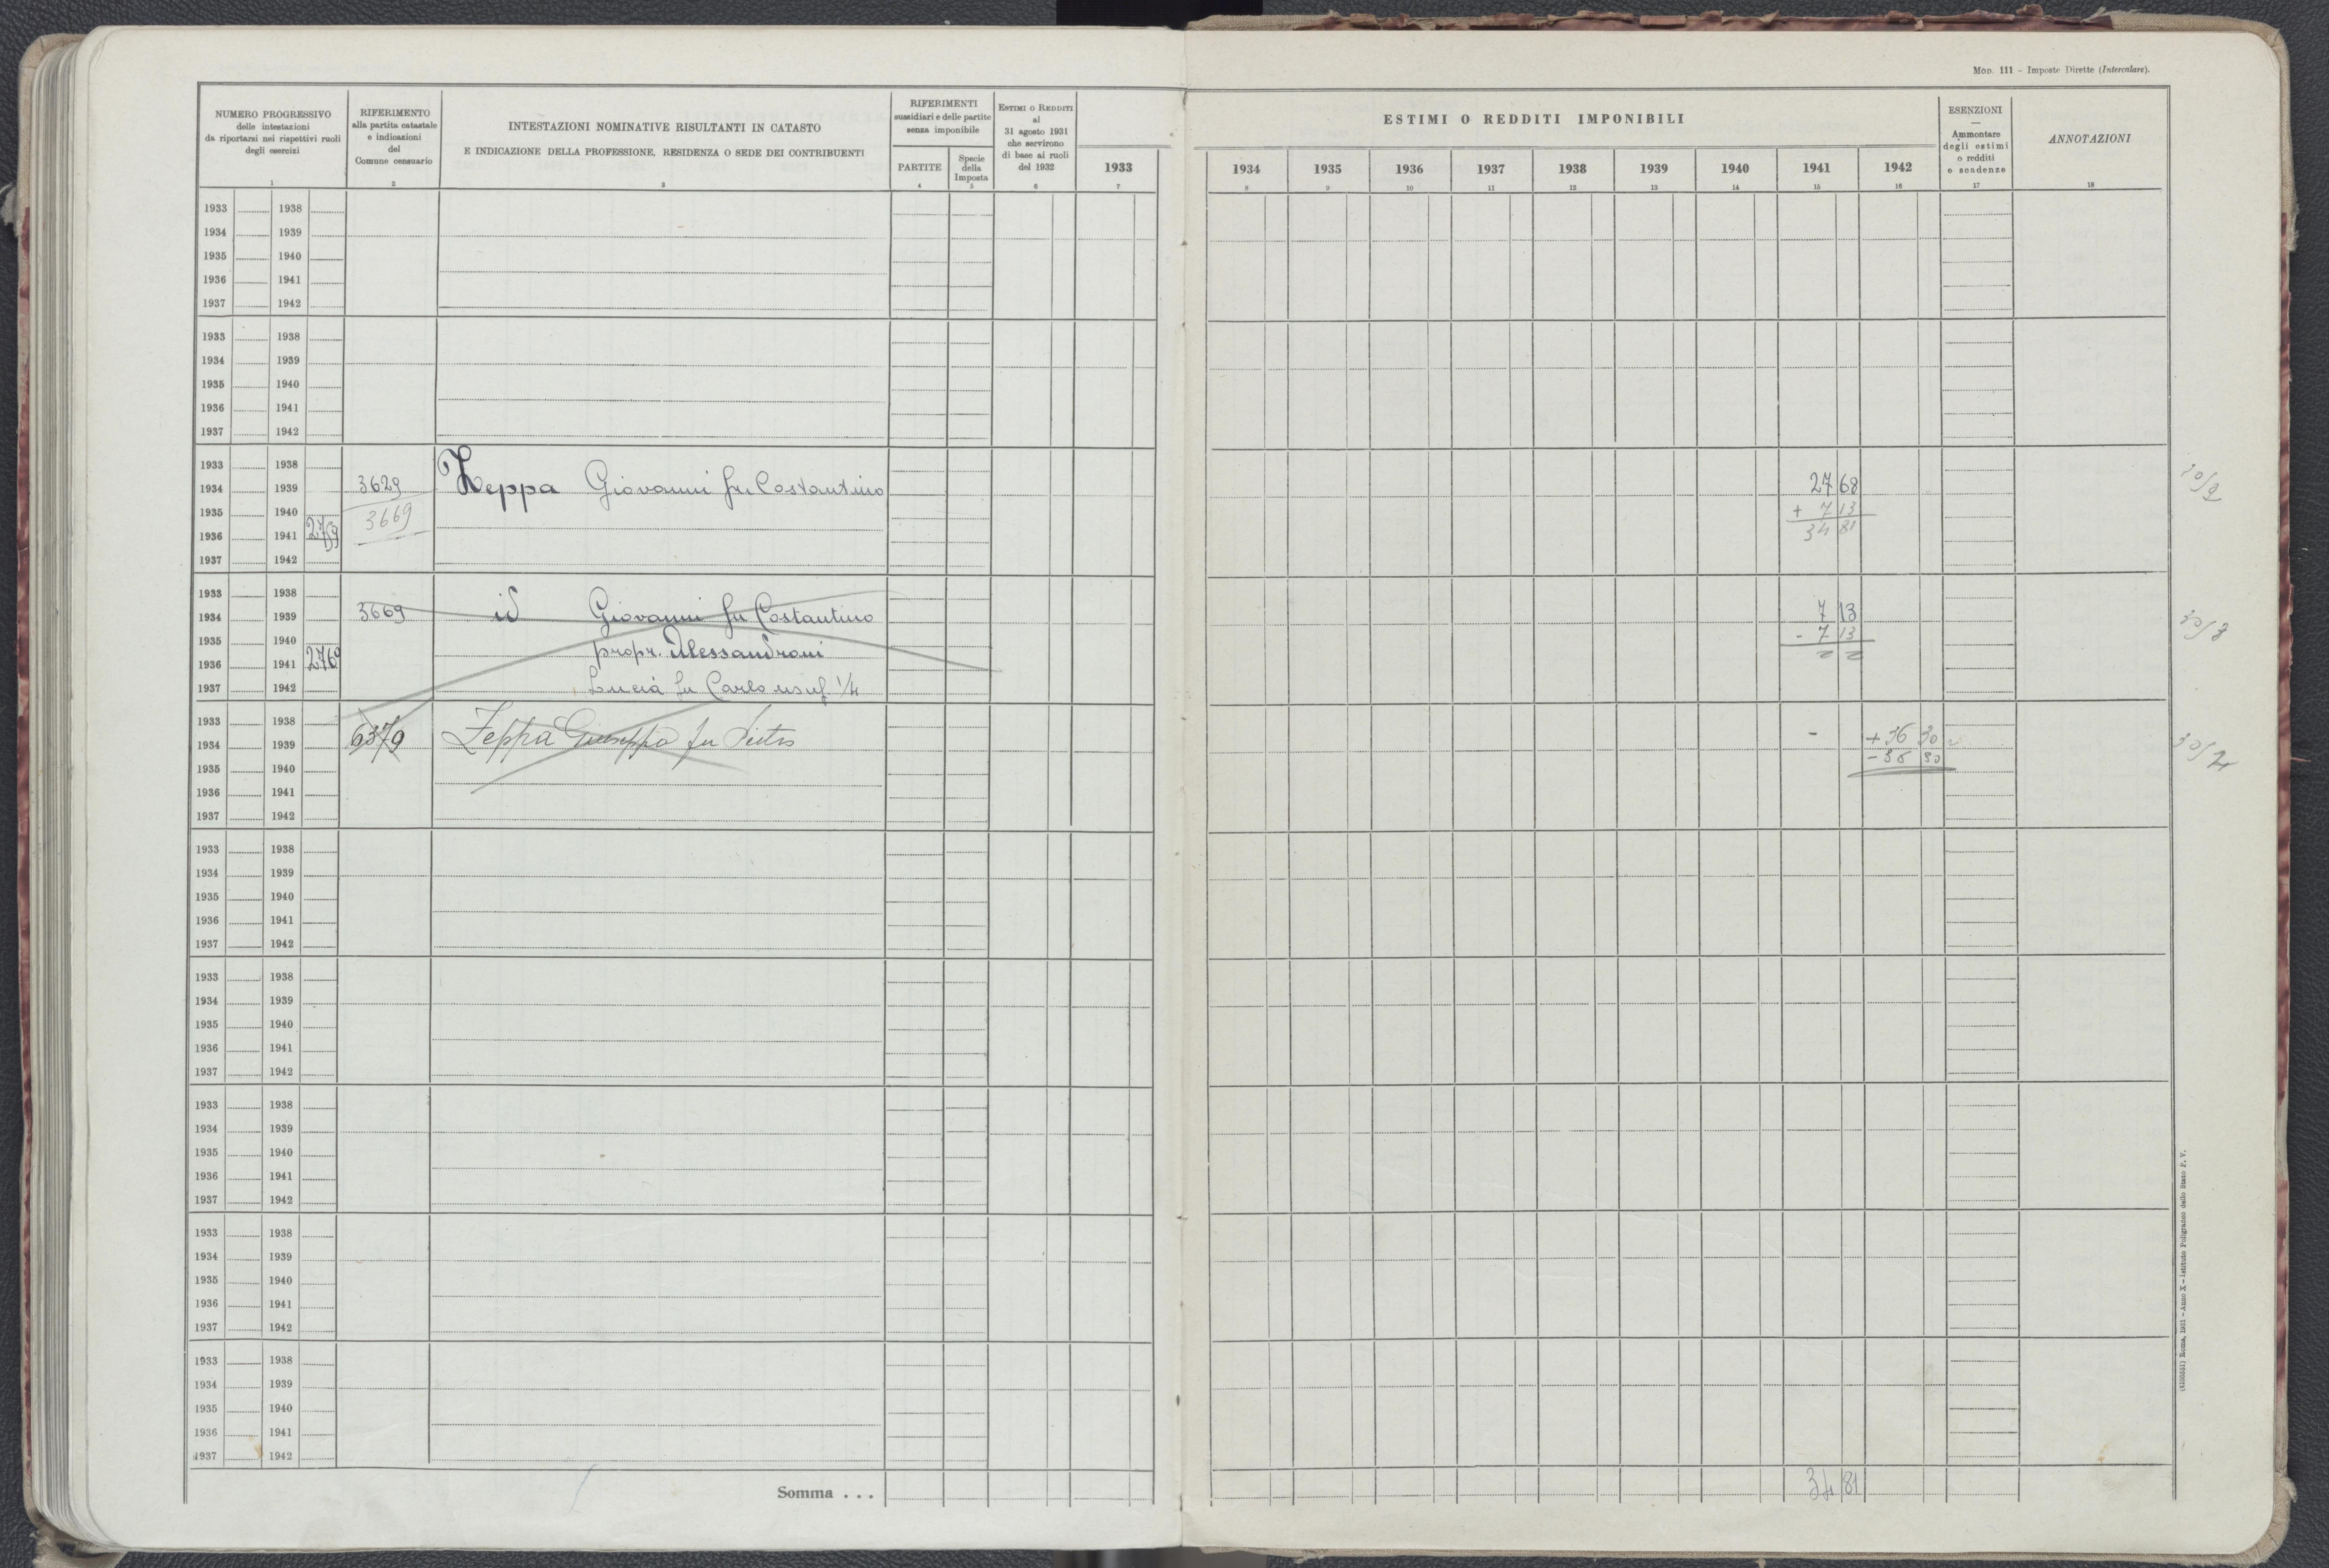 Mod. 111 - Imposte Dirette (Intercalare).
NUMERO PROGRESSIVO
delle intestazioni
da riportarsi nei rispettivi ruoli
degli esercizi
1
RIFERIMENTO
alla partita catastale
e indicazioni
del
Comune censuario
2
INTESTAZIONI NOMINATIVE RISULTANTI IN CATASTO
E INDICAZIONE DELLA PROFESSIONE, RESIDENZA O SEDE DEI CONTRIBUENTI
3
RIFERIMENTI
sussidiari e delle partite
senza imponibile
PARTITE
4
Specie
della
Imposta
5
ESTIMI O REDDITI
al
31 agosto 1931
che servirono
di base ai ruoli
del 1932
6
1933
7
ESTIMI O REDDITI IMPONIBILI
1934 1935 1936 1937 1938 1939 1940 1941 1942
8 9 10 11 12 13 14 15 16
ESENZIONI
—
Ammontare
degli estimi
o redditi
e scadenze
17
ANNOTAZIONI
18
1933 1938
1934 1939
1935 1940
1936 1941
1937 1942
1933 1938
1934 1939
1935 1940
1936 1941
1937 1942
1933 1938
1934 1939 3629 Zeppa Giovanni fu Costantino 27 68
1935 1940 3669 + 7 13
1936 1941 2759 34 81
1937 1942
1933 1938
1934 1939 3669 id Giovanni fu Costantino 7 13
1935 1940 propr. Alessandroni - 7 13
1936 1941 2769
1937 1942 Lucia fu Carlo usuf 1/4
1933 1938
1934 1939 6379 Zeppa Giuseppa fu Pietro - + 36 30
1935 1940 - 36 30
1936 1941
1937 1942
1933 1938
1934 1939
1935 1940
1936 1941
1937 1942
1933 1938
1934 1939
1935 1940
1936 1941
1937 1942
1933 1938
1934 1939
1935 1940
1936 1941
1937 1942
1933 1938
1934 1939
1935 1940
1936 1941
1937 1942
1933 1938
1934 1939
1935 1940
1936 1941
1937 1942
Somma . . . 34 81